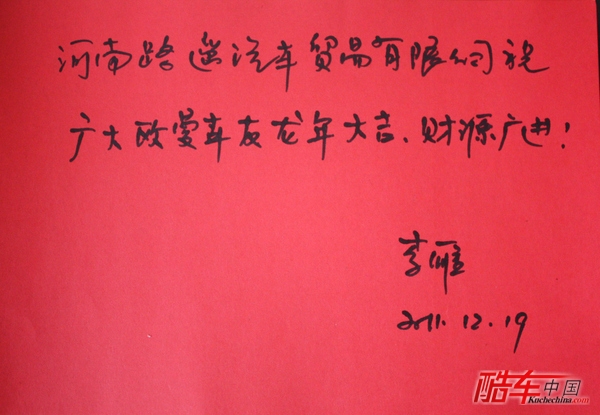 河南路遥汽车贸易有限公司祝
广大欧曼车友龙年大吉、财源广进!
李雁
2011.12.19
酷车中国
Kuchechina.com